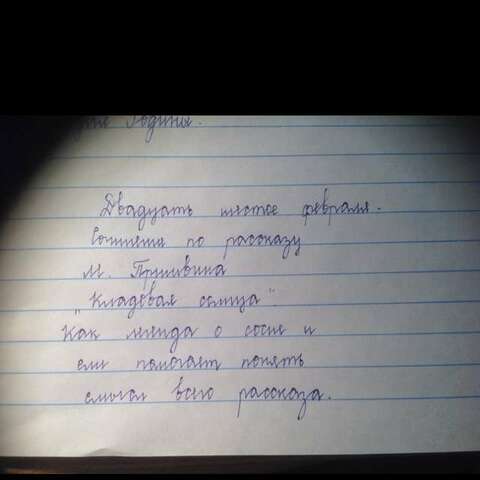 Родины.
Двадцать шестое февраля.
Сочинение по рассказу
М. Пришвина
„Кладовая солнца".
Как легенда о сосне и
ели помогает понять
смысл всего рассказа.